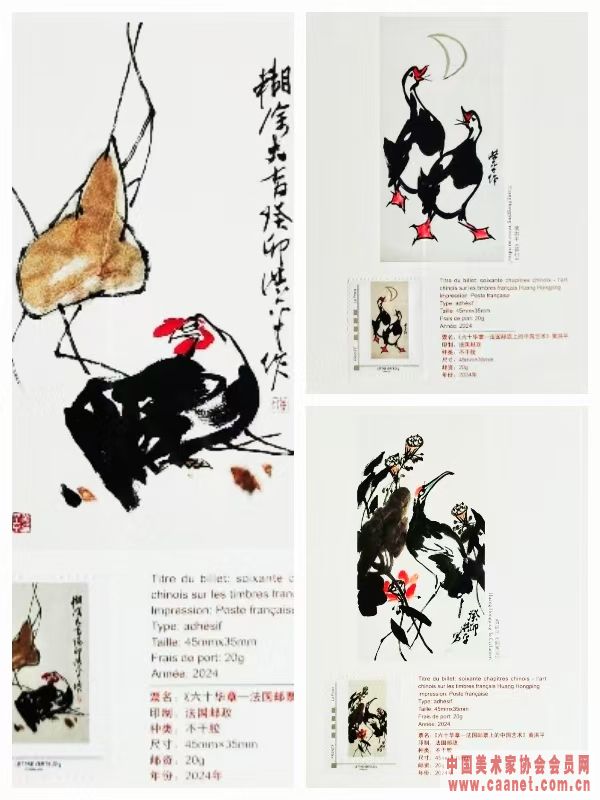 糊涂大吉癸卯洪平作
Titre du billet: soixante c
chinois sur les timbres français
Impression: Poste française
Type: adhésif
Taille: 45mm×35mm
Frais de port: 20g
Année: 2024
票名：《六十华章—法国邮票
印制：法国邮政
种类：不干胶
尺寸：45mm×35mm
邮资：20g
年份：2024年
Titre du billet: soixante chapitres chinois - l'art
chinois sur les timbres français Huang Hongping
Impression: Poste française
Type: adhésif
Taille: 45mm×35mm
Frais de port: 20g
Année: 2024
票名：《六十华章—法国邮票上的中国艺术》黄洪平
印制：法国邮政
种类：不干胶
尺寸：45mm×35mm
邮资：20g
年份：2024年
癸卯
Titre du billet: soixante chapitres chinois - l'art
chinois sur les timbres français Huang Hongping
Impression: Poste française
Type: adhésif
Taille: 45mm×35mm
Frais de port: 20g
Année: 2024
票名：《六十华章—法国邮票上的中国艺术》黄洪平
印制：法国邮政
种类：不干胶
尺寸：45mm×35mm
邮资：20g
年份：2024年
中国美术家协会会员网
www.caanet.com.cn